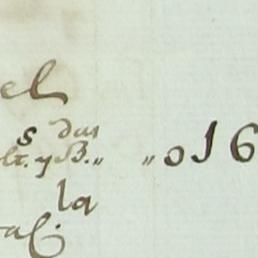 el
s das
lt. y B. „ „ 016
la
al.